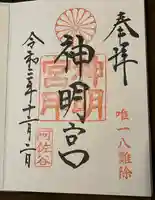 奉拝
唯一八難除
神明宮
神明宮
阿佐谷
令和二年十二月二日